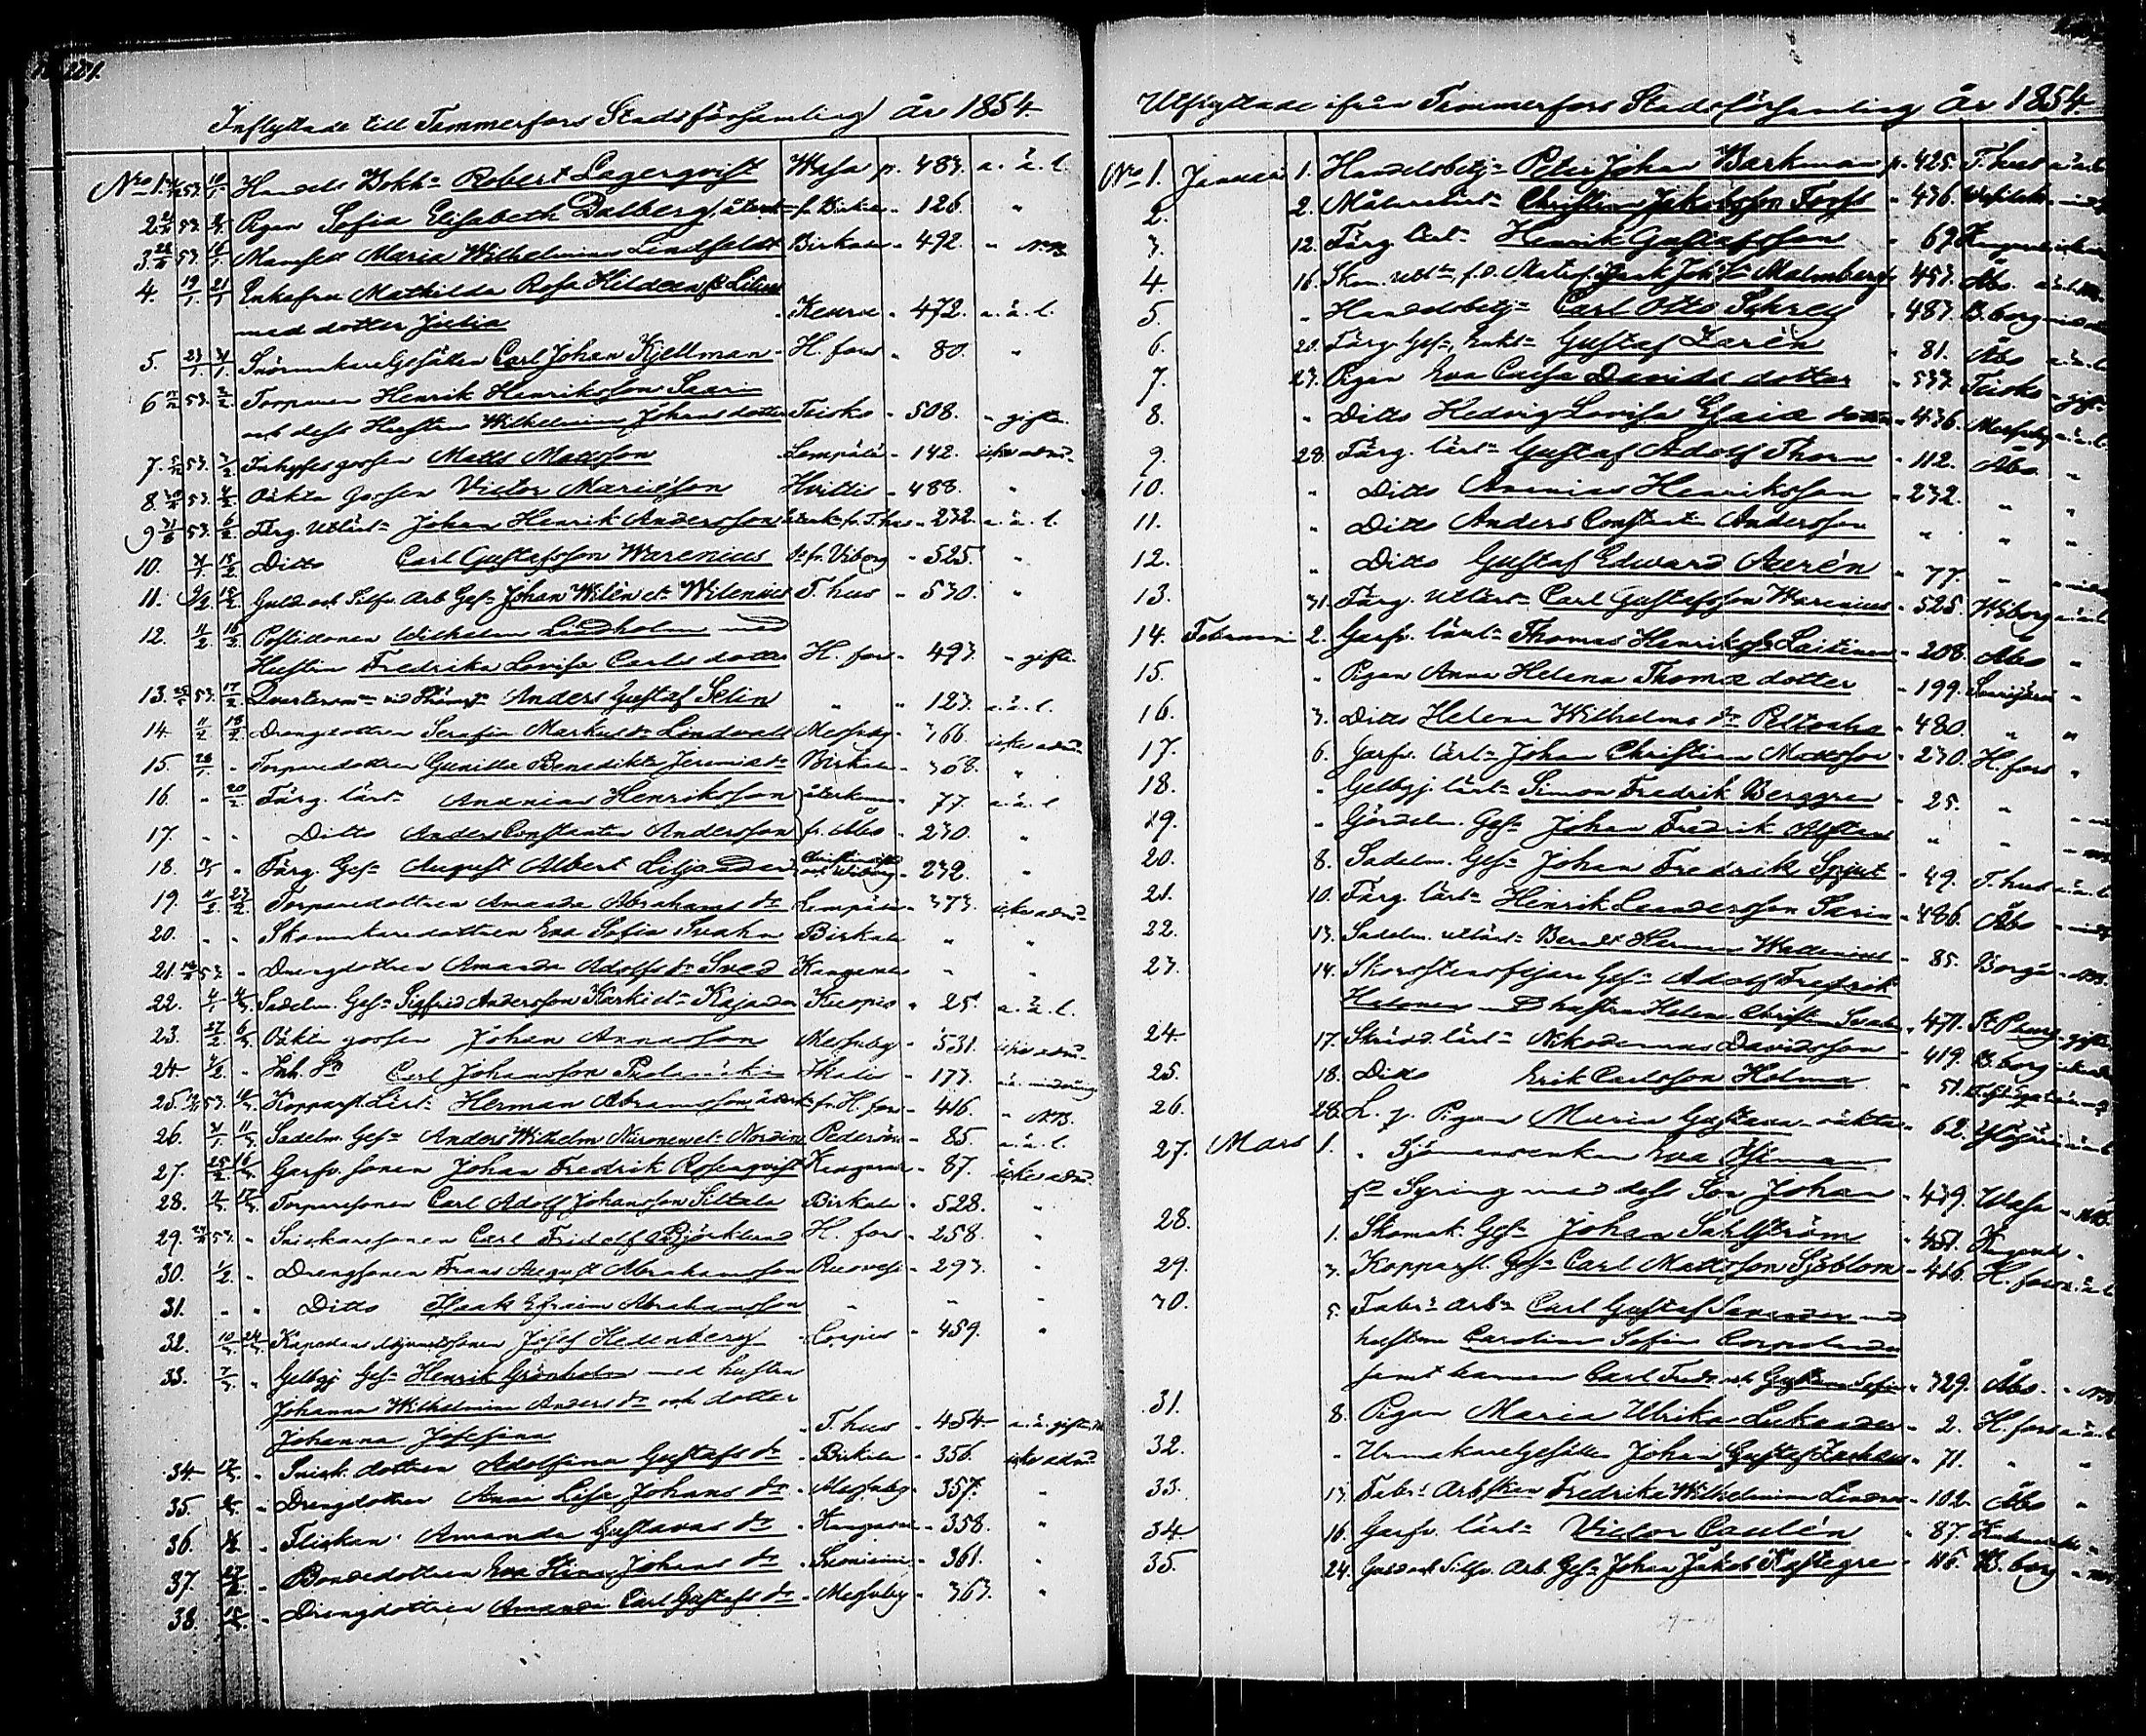 201.
Inflyttade till Tammerfors Stadsförsamling år 1854.
No 1. 53. 10/1 Handels Bokh. Robert Lagerqvist Wasa p. 483. a. ä. l.
2. 53. Pigan Sofia Elisabeth Dalberg, återk. fr. Birkala - 126. "
3. 53. 16/1 Mamsell Maria Wilhelmina Lindfeldt Birkala - 492. " NB
4. 19/1 21/1 Enkefru Mathilda Rosa Hildén f.
med dotter Julia - 472. a. ä. l.
5. 23/1 31/1 Snörmakare Gesällen Carl Johan Kjellman - H. fors - 80. "
6 53. 2/2 Torparen Henrik Henriksson Saarin
och dess Hustru Wilhelmina Johans dotter Teisko - 508. " gifta
7. 53. Inhyses gossen Matts Mattsson Lempälä - 142. icke adm.
8. 53. Oäkta Gossen Victor Mariæson Hvittis - 488. "
9 53. 6/2 Färg. Utlärl. Johan Henrik Andersson återk. fr. T. hus - 232. a. ä. l.
10. 15/2 Ditto Carl Gustafsson Warenius do fr. Viborg - 525. "
11. 9/2 15/2 Guld och Silfv. Arb. Ges. Johan Wilén et. Wilenius T. hus - 530. "
12. 11/2 16/2 Postillionen Wilhelm Lindholm med
Hustru Fredrika Lovisa Carls dotter H. fors - 493. " gifta
13. 53. 17/2 Anders Gustaf Selin " " 123. a. ä. l.
14 11/2 18/2 Drengdottren Serafia Markus do Lindvall Messuby - 366. icke adm.
15. 28/1 " Torparedottren Gunilla Benedikta Jeremias do Birkala - 368. "
16. " 20/2 Färg. lärl. Ananias Henriksson återkomne - 77. a. ä. l
17. " " Ditto Anders Constantin Andersson fr. Åbo - 230. "
18. " Färg. Ges. August Albert Liljander Christinestad och Wiborg - 232. "
19. 11/2 23/2 Torparedottren Amanda Abrahams do Lempälä - 373. icke adm.
20. " " Skomakaredottren Eva Sofia Svahn Birkala " "
21. 53. " Drengdottren Amanda Adolfs do Sved Kangasala " "
22. Sadelm. Ges. Sigfrid Andersson Karki et. Kajander Kuopio - 25. a. ä. l.
23. 27/2 6/3 Oäkta gossen Johan Annasson Messuby - 531. icke adm.
24 " Inh. Sn Carl Johansson Ikalis - 177.
25. 53. Kopparsl. Lärl. Herman Abramsson, återk. fr. H. fors - 416. " NB.
26. 11/3 Sadelm. Ges. Anders Wilhelm Nironen et. Nordin Pedersöre - 85. a. ä. l.
27. 25/2 16/3 Garfv. sonen Johan Fredrik Rosenqvist Kangasala - 87. icke adm.
28. Torparesonen Carl Adolf Johansson Siltala Birkala - 528. "
29. 53. " Snickaresonen Carl Fridolf Björklund H. fors - 258. "
30. 1/2 " Drengsonen Frans August Abrahamsson Ruovesi - 293. "
31. " " Ditto Isaak Efraim Abrahamsson " " "
32. 10/3 24/3 Josef Hedenberg - 459. "
33. 7/3 " Gelbgj. Ges. Henrik Grönholm med hustru
Johanna Wilhelmina Anders do och dotter
Johanna Josefina - T. hus - 454 a. ä. gifta
34 " Snick. dottren Adolfina Gustafs do - Birkala - 356. icke adm.
35. " Drengdottren Anna Lisa Johans do - Messuby - 357. "
36. " Flickan Amanda Gustavas do - Kangasala - 358. "
37. 27/2 " Bondedottren Eva Stina Johans do - 361. "
38. " Drengdottren Amanda Carl Gustafs do - Messuby - 363. "
Utflyttade ifrån Tammerfors Stadsförsamling år 1854.
No 1. Januari 1. Handelsbetj. Peter Johan Barkman p. 425. T. hus
2. 2. Målarelärl. Christian Jakobsson Forss - 436.
3. 12. Färg. lärl. Henrik Gustafsson - 69
4 16. Skom. Utl. f.d. Matros Isaak Joh. Sn Malmberg - 453. Åbo
5. " Handelsbetj. Carl Otto Schrey - 483. B. borg
6. 20. Färg. Ges. Gustaf Zarén " 81. Åbo a. ä. l
7. 23. Pigan Eva Caisa Davids dotter " 533. Teisko - gift
8. " Ditto Hedvig Lovisa Esaiæ dotter - 436. Messuby a. ä. l
9. 28. Färg. lärl. Gustaf Adolf Thorn - 112. Åbo "
10. " Ditto Ananias Henriksson - 232. " "
11. " Ditto Anders Constantin Andersson " " "
12. " Ditto Gustaf Edward Aurén - 77. "
13. 31. Färg. Utlärl. Carl Gustafsson Warenius - 525. Wiborg a. ä. l
14. Februari 2. Garfv. lärl. Thomas Henriksson Laitinen - 208. Åbo "
15. " Pigan Anna Helena Thomæ dotter - 199. "
16. 3. Ditto Helena Wilhelms do - 480. " "
17. 6. Garfv. lärl. Johan Christian Mattsson - 230. H. fors "
18. " Gelbgj. lärl. Simon Fredrik Berggren - 25. "
19. " Gördelm. Ges. Johan Fredrik Alsten " "
20. 8. Sadelm. Ges. Johan Fredrik Spjut - 49. T. hus a. ä. l
21. 10. Färg. lärl. Henrik Leandersson Sarin - 486. Åbo
22. 13. Sadelm. utlärl. Berndt Herman Wallenius - 85. Borgå - NB.
23. 14. Skorstensfejare Ges. Adolf Fredrik
Halonen med hustru Helena Christina - 471. St. Pburg - gifta
24 17. lärl. Nikodemus Davidsson - 419. B. borg
25. 18. Ditto Erik Carlsson Holma " 51.
26. 28. L. p. Pigan Maria Gustava oäkta - 62. Ylöjärvi
27. Mars 1. " Sjömansenkan Eva Öhman
f. Syring med dess Son Johan - 439. Wasa - NB.
28. 1. Skomak. Ges. Johan Sahlström - 451. "
29. 3. Kopparsl. Ges. Carl Mattsson Sjöblom - 416. H. fors a. ä. l
30. 5. Fabr. Arb. Carl Gustaf med
hustru Carolina Sofia
samt barnen Carl Fredr. och Gustava Sofia - 329. Åbo - NB
31. 8. Pigan Maria Ulrika Lukander - 2. H. fors a. ä. l
32. " Urmakaregesällen Johan Gustaf - 71. " "
33. 13. Fabr. Arbskan Fredrika Wilhelmina - 102. Åbo "
34 16. Garfv. lärl. Victor Caulén " 87. "
35. 24. Guld och Silfv. Arb. Ges. Johan Jakob - 116. B. borg